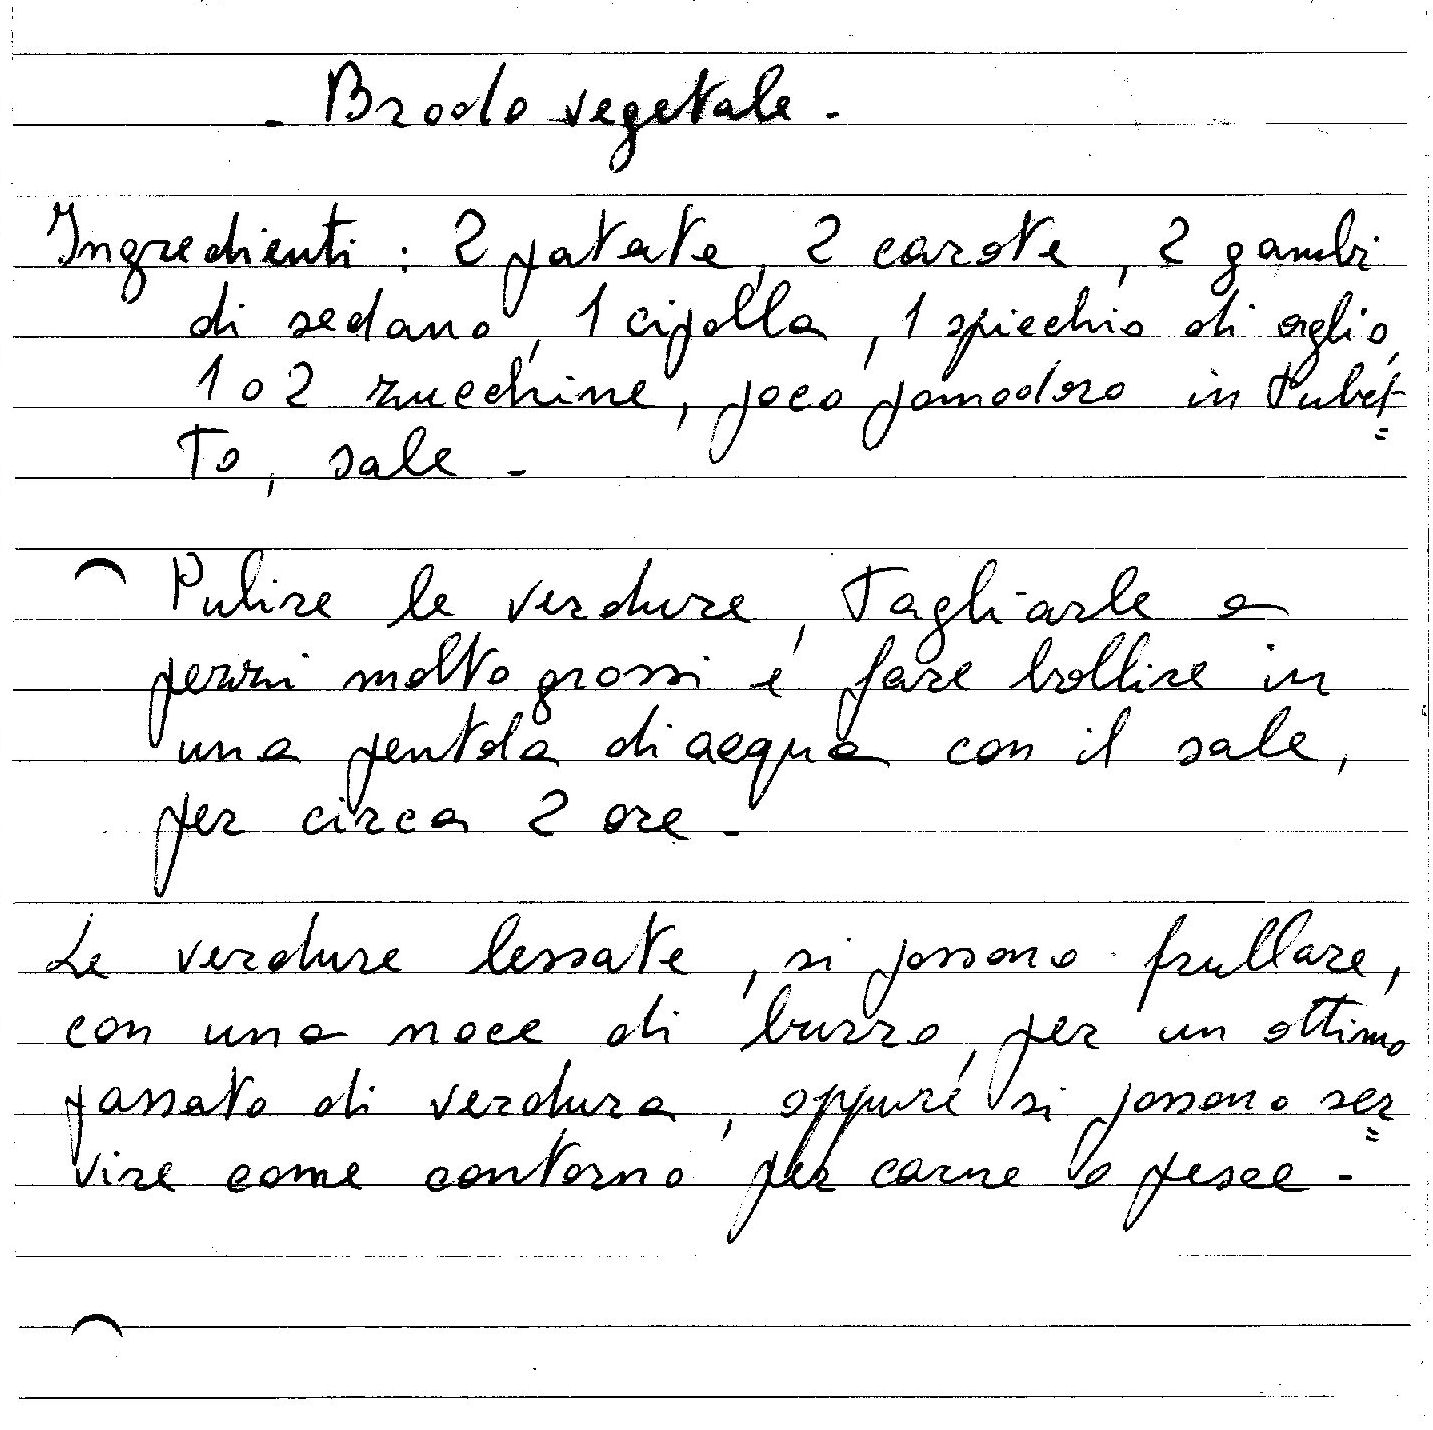 - Brodo vegetale -
Ingredienti : 2 patate, 2 carote, 2 gambi
di sedano, 1 cipolla, 1 spicchio di aglio,
1 o 2 zucchine, poco pomodoro in tubet=
to, sale -
Pulire le verdure, tagliarle a
pezzi molto grossi e fare bollire in
una pentola di acqua con il sale,
per circa 2 ore -
Le verdure lessate, si possono frullare,
con una noce di burro, per un ottimo
passato di verdura, oppure si possono ser=
vire come contorno per carne o pesce -